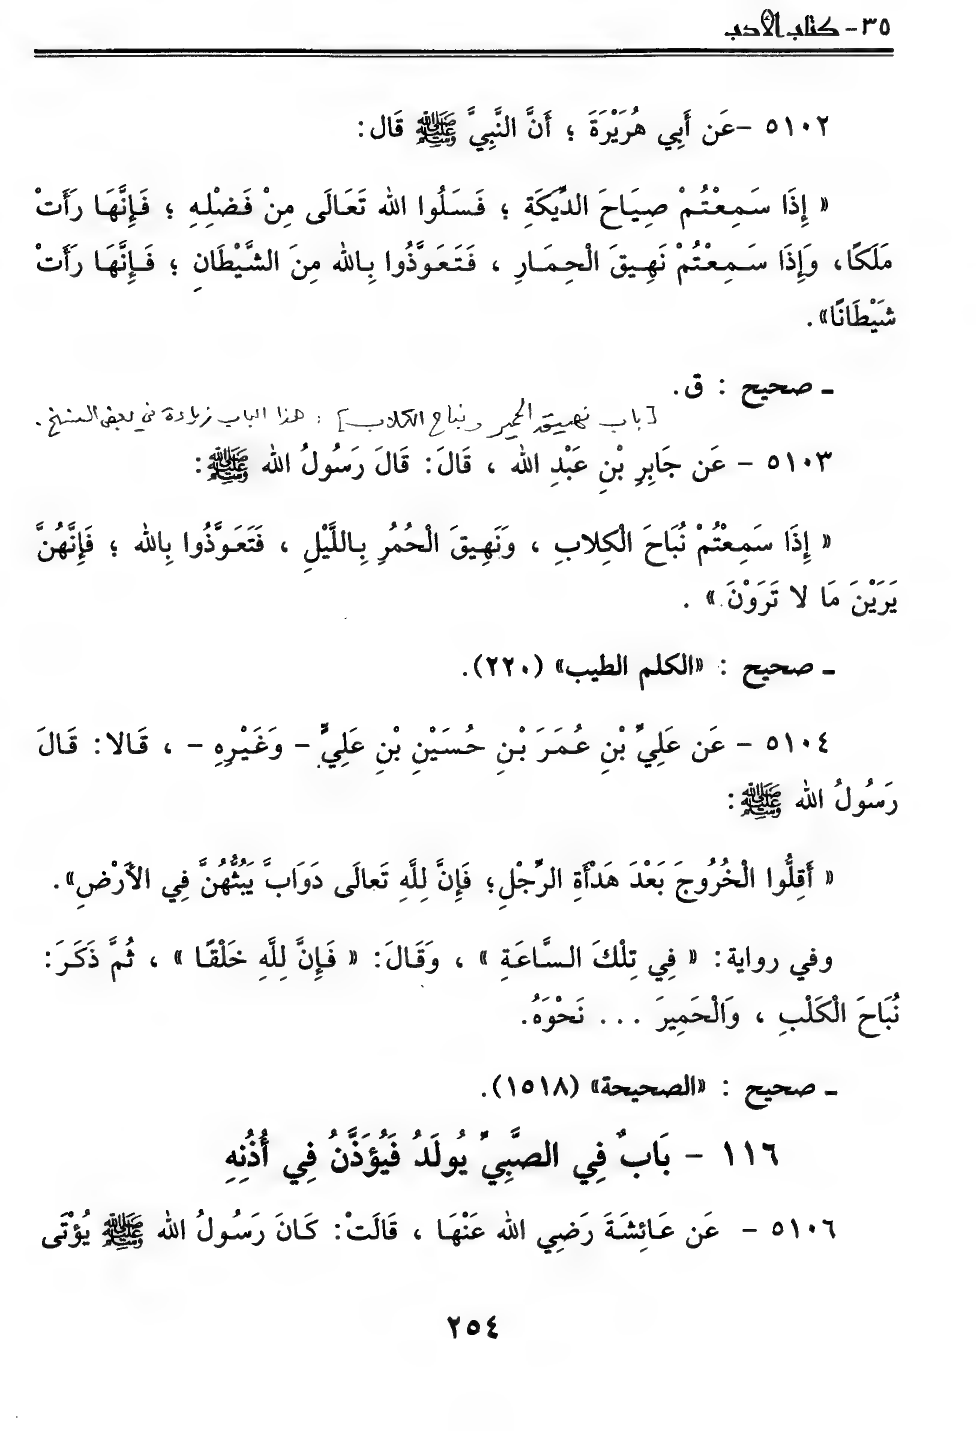 ٣٥ - كتاب الأدب
٥١٠٢ -عَن أَبِي هُرَيْرَةَ ؛ أَنَّ النَّبِيَّ ﷺ قَال:
« إِذَا سَمِعْتُمْ صِيَاحَ الدِّيَكَةِ ؛ فَسَلُوا الله تَعَالَى مِنْ فَضْلِهِ ؛ فَإِنَّهَا رَأَتْ
مَلَكًا، وَإِذَا سَمِعْتُمْ نَهِيقَ الْحِمَارِ ، فَتَعَوَّذُوا بِالله مِنَ الشَّيْطَانِ ؛ فَإِنَّهَا رَأَتْ
شَيْطَانًا» .
ـ صحيح : ق.
[باب نهيق الحمير ونباح الكلاب] : هذا الباب زيادة في بعض النسخ .
٥١٠٣ - عَن جَابِرِ بْنِ عَبْدِ الله ، قَالَ: قَالَ رَسُولُ الله ﷺ:
« إِذَا سَمِعْتُمْ نُبَاحَ الْكِلابِ ، وَنَهِيقَ الْحُمُرِ بِاللَّيْلِ ، فَتَعَوَّذُوا بِالله ؛ فَإِنَّهُنَّ
يَرَيْنَ مَا لا تَرَوْنَ » .
ـ صحيح : «الكلم الطيب» (٢٢٠).
٥١٠٤ - عَن عَلِيِّ بْنِ عُمَرَ بْنِ حُسَيْنِ بْنِ عَلِيٍّ - وَغَيْرِهِ - ، قَالا: قَالَ
رَسُولُ الله ﷺ:
« أَقِلُّوا الْخُرُوجَ بَعْدَ هَدْأَةِ الرِّجْلِ؛ فَإِنَّ لِلَّهِ تَعالَى دَوَابَّ يَبُثُّهُنَّ فِي الأَرْضِ».
وفي رواية: « فِي تِلْكَ السَّاعَةِ » ، وَقَالَ: « فَإِنَّ لِلَّهِ خَلْقًا » ، ثُمَّ ذَكَرَ:
نُبَاحَ الْكَلْبِ ، وَالْحَمِيرَ ... نَحْوَهُ.
ـ صحيح : «الصحيحة» (١٥١٨).
١١٦ - بَابٌ فِي الصَّبِيِّ يُولَدُ فَيُؤَذَّنُ فِي أُذُنِهِ
٥١٠٦ - عَن عَائِشَةَ رَضِي الله عَنْهَا ، قَالَتْ: كَانَ رَسُولُ الله ﷺ يُؤْتَى
٢٥٤